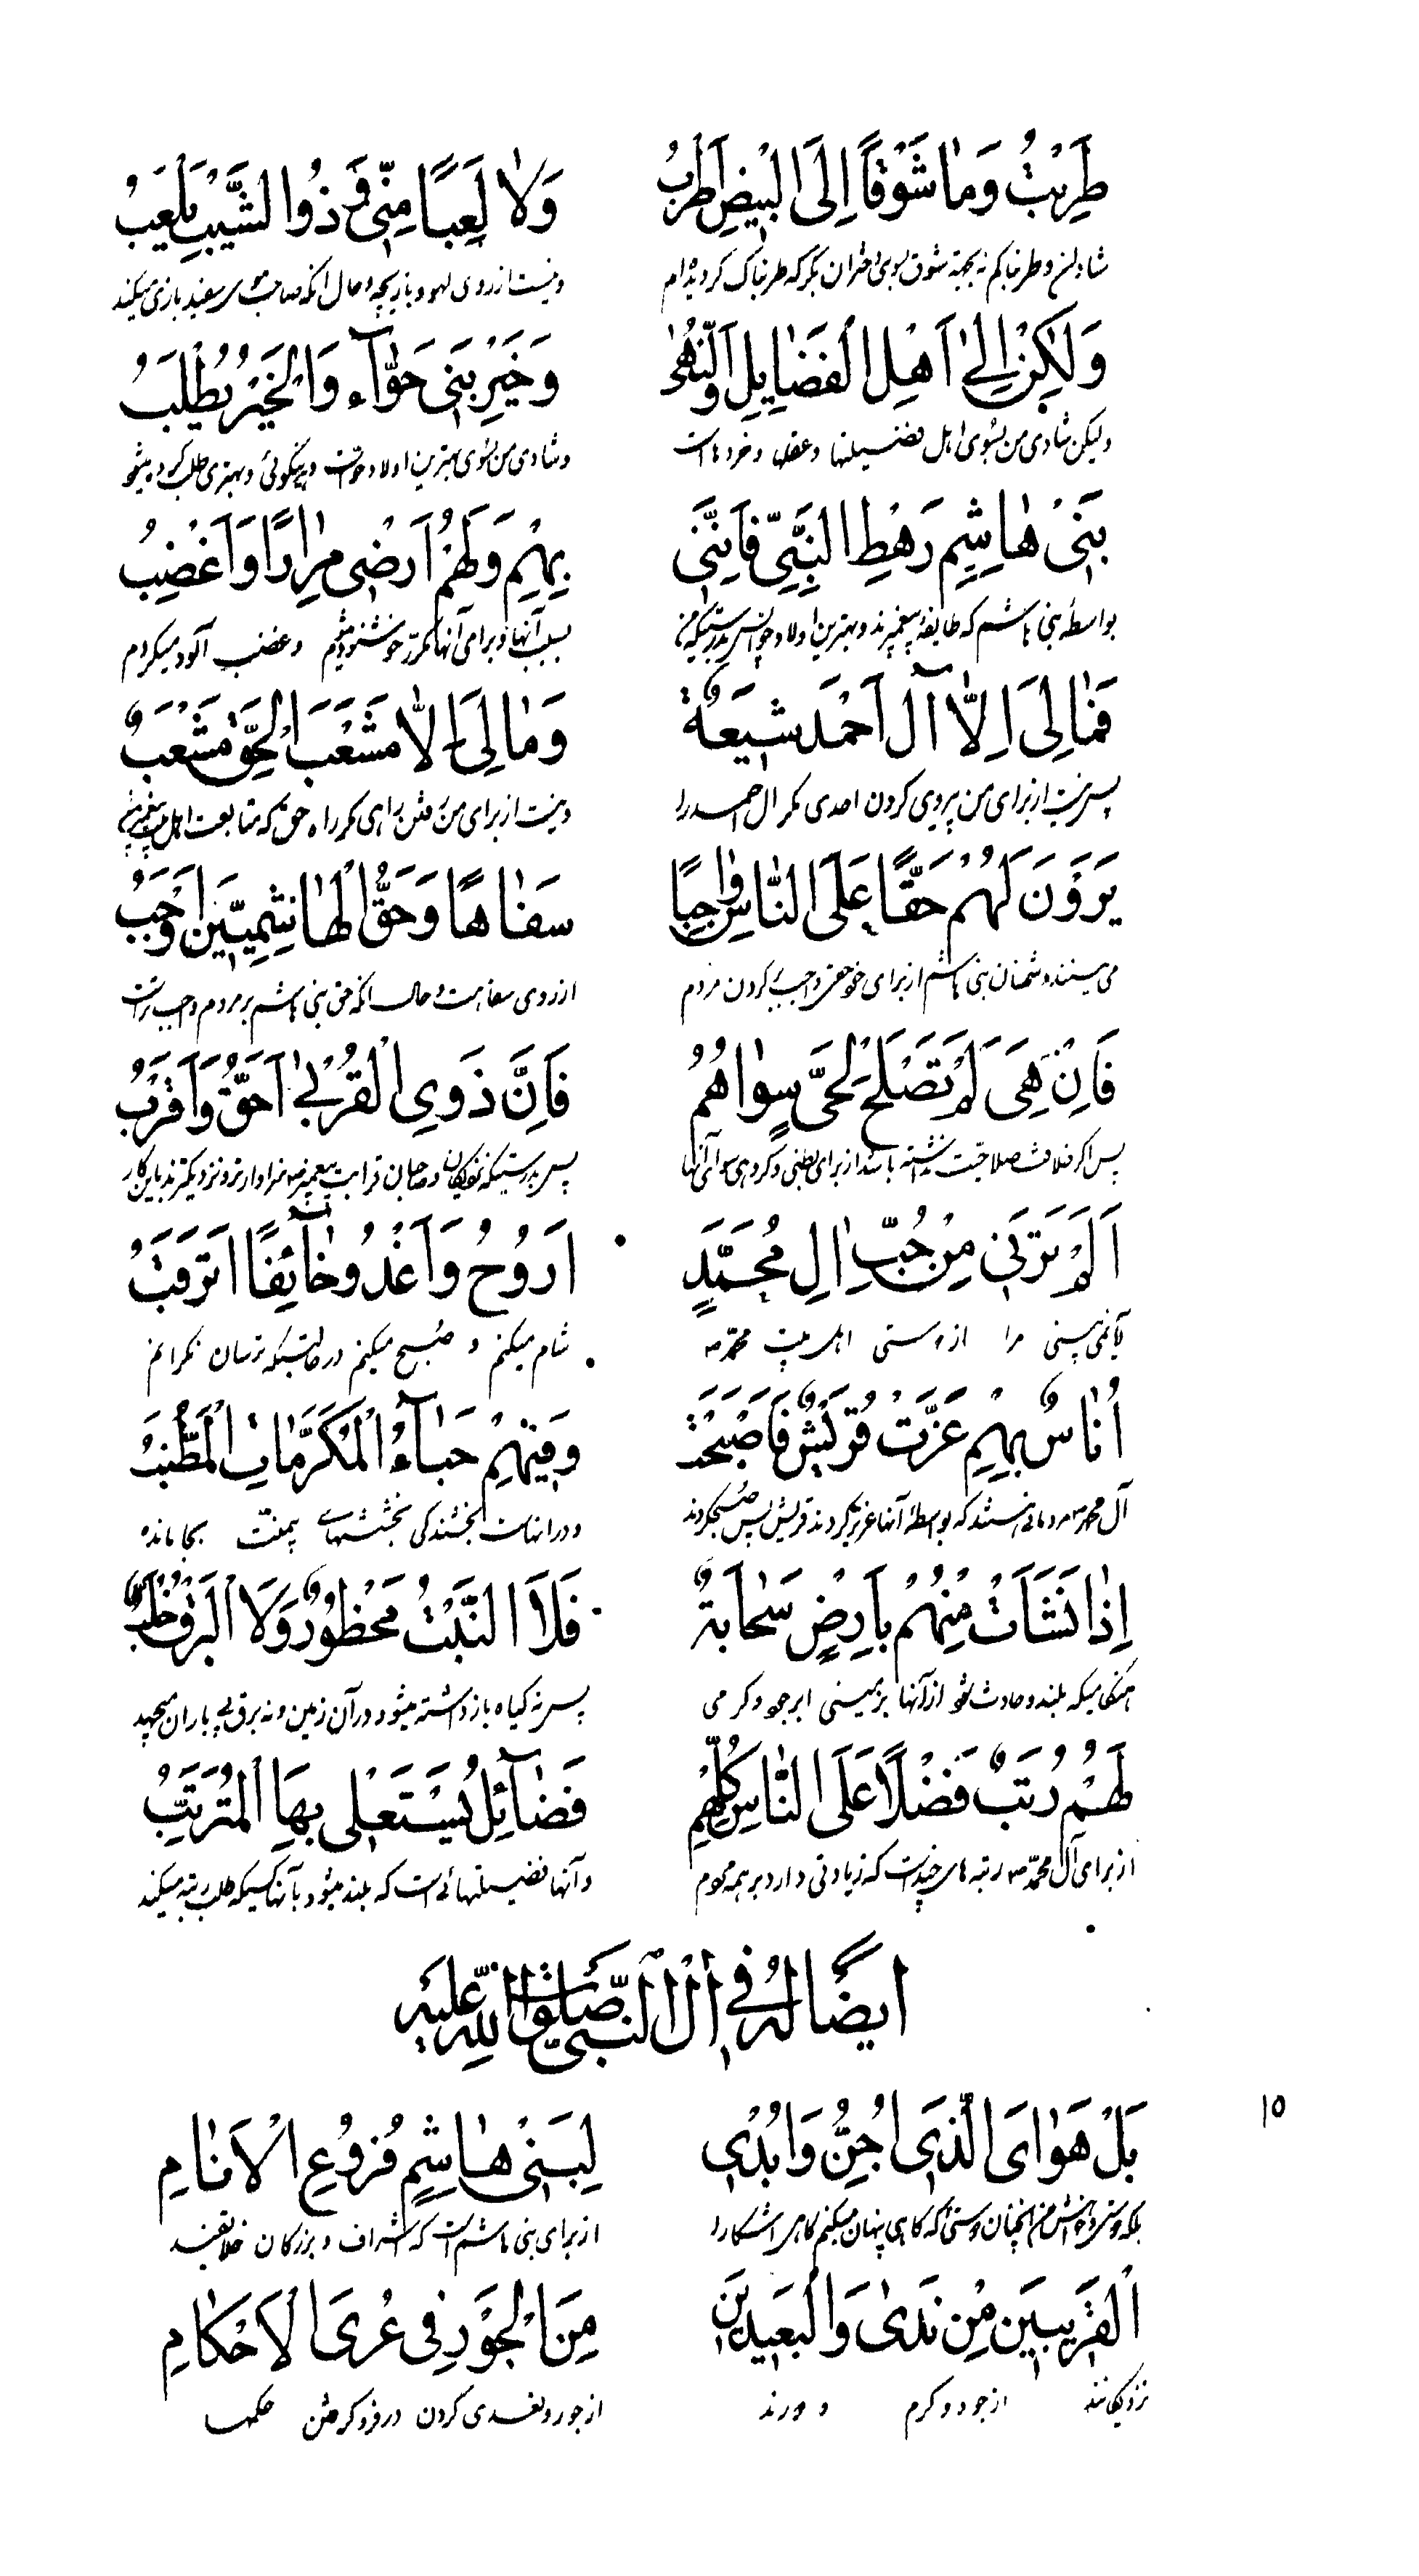 طَرِبْتُ وَمٰا شَوْقًا اِلَى الْبِيضِ اَطْرَبُ وَلاٰ لَعِبًا مِنّى وَ ذُوا الشَّيْبِ يَلْعَبُ
شادان و طربناکم نه بجهة شوق بسوی دختران بکر که طربناک گردیده‌ام و نیست از روی لهو و بازیچه و حال انکه صاحب موی سر سفید بازی میکند
وَلٰكِنْ اِلىٰ اَهْلِ الْفَضٰايِلِ وَالنُّهىٰ وَخَيْرِ بَنى حَوّٰآءَ وَالْخَيْرُ يُطْلَبُ
ولیکن شادی من بسوی اهل فضیلتها و عقلها و خردهاست و شادی من بسوی بهترین اولاد حوّاست و نیکوئی و بهتری طلب کرده میشود
بَنى هٰاشِمٍ رَهْطِ النَّبِيِّ فَاِنَّنى بِهِمْ وَلَهُمْ اَرْضٰى مِرٰارًا وَاَغْضِبُ
بواسطهٔ بنی هاشم که طایفهٔ پیغمبرند و بهترین اولاد حوا پس بدرستیکه من بسبب آنها و برای آنها مکرر خوشنود میشوم و غضب آلود میگردم
فَمٰالِىَ اِلاّٰ آلَ اَحْمَدَ شيعَةٌ وَمٰالِىَ اِلاّٰ مَشْعَبَ الْحَقِّ مَشْعَبٌ
پس نیست از برای من پیروی کردن احدی مگر ال احمد را و نیست از برای من رفتن براهی مگر راه حق که متابعت اهل بیت پیغمبر است
يَرَوْنَ لَهُمْ حَقًّا عَلَى النّٰاسِ وٰاجِبًا سَفٰاهًا وَحَقُّ الْهٰاشِمِيّينَ اَوْجَبُ
می بینند دشمنان بنی هاشم از برای خود حق واجب کردن مردم از روی سفاهت و حال انکه حق بنی هاشم بر مردم واجب تر است
فَاِنْ هِىَ لَمْ تَصْلَحْ لِحَىٍّ سِوٰاهُمُ فَاِنَّ ذَوِى الْقُرْبىٰ اَحَقُّ وَاَقْرَبُ
پس اگر خلافت صلاحیت نداشته باشد از برای بطنی و گروهی سوای آنها پس بدرستیکه نزدیکان و صاحبان قرابت پیغمبر سزاوارتر و نزدیکترند باین کار
اَلَمْ تَرَنى مِنْ حُبِّ اٰلِ مُحَمَّدٍ اَرُوحُ وَاَغْدُو خٰآئِفًا اَتَرَقَّبُ
آیا نمی بینی مرا از دوستی اهل بیت محمّد ص شام میکنم و صبح میکنم در حالتیکه ترسان نگرانم
اُنٰاسٌ بِهِمْ عَزَّتْ قُرَيْشٌ فَاَصْبَحَتْ وَفيهِمْ خَبٰآءُ الْمَكْرَمٰاتِ الْمُطَّنَبُ
آل محمد ص مردمانی هستند که بواسطهٔ آنها عزیز گردیدند قریش پس صبح کردند و در انهاست بخشندگی بخششهای بیمنت بجا مانده
اِذٰا نَشَاَتْ مِنْهُمْ بِاَرِضٍ سَحٰابَةٌ فَلاَ النَّبْتُ مَحْظُورٌ وَلاَ الْبَرْقُ خُلَّبٌ
هنگامیکه بلند و حادث شود از آنها بزمینی ابر جود و کرمی پس نه گیاه باز داشته میشود در آن زمین و نه برق بی باران میجهد
لَهُمْ رُتَبٌ فَضْلًا عَلَى النّٰاسِ كُلِّهِمْ فَضٰآئِلُ يُسْتَعْلى بِهَا الْمُتَرَتِّبُ
از برای آل محمّد ص رتبه های چند است که زیادتی دارد بر همه مردم و آنها فضیلتهائی است که بلند میشود بآنها کسیکه طلب رتبه میکند
ايضًا لَهُ فى اٰلِ النَّبىِّ صَلَوٰاتُ اللّٰهِ عَلَيْهِ
١٥
بَلْ هَوٰاىَ الَّذى اُجِنُّ وَاُبْدى لِبَنى هٰاشِمٍ فُرُوعِ الْاَنٰامِ
بلکه دوستی و خواهش من انچنان دوستی که گاهی پنهان میکنم گاهی اشکارا از برای بنی هاشم است که اشراف و بزرگان خلایقند
اَلْقَريبينَ مِنْ نَدىٰ وَالْبَعيدينَ مِنَ الْجَوْرِ فى عُرَى الْاَحْكٰامِ
نزدیکانند از جود و کرم و دورند از جور و تعدی کردن در فرو گرفتن حکمها